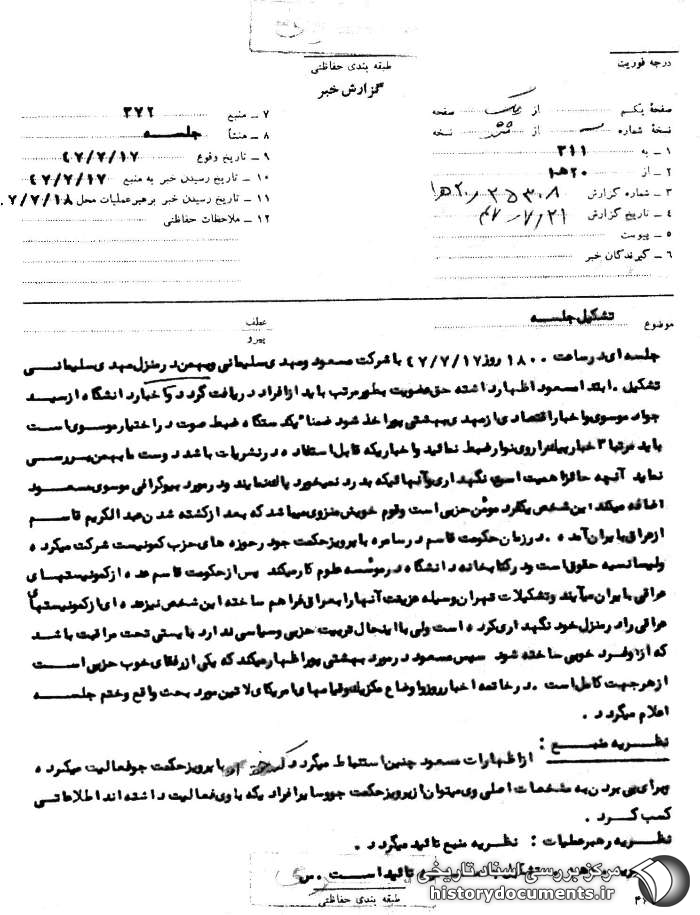 درجه فوریت
طبقه بندی حفاظتی
گزارش خبر
صفحهٔ یکم از یک صفحه
نسخهٔ شماره از شش نسخه
۱ ـ به ۳۱۱
۲ ـ از ۲۰ هـ ۱
۳ ـ شماره گزارش ۲۵۳۰۸ / ۲۰ هـ ۱
۴ ـ تاریخ گزارش ۴۷/۷/۲۱
۵ ـ پیوست
۶ ـ گیرندگان خبر
۷ ـ منبع ۳۷۲
۸ ـ منشأ جلسه
۹ ـ تاریخ وقوع ۴۷/۷/۱۷
۱۰ ـ تاریخ رسیدن خبر به منبع ۴۷/۷/۱۷
۱۱ ـ تاریخ رسیدن خبر برهبر عملیات محل ۷/۷/۱۸
۱۲ ـ ملاحظات حفاظتی
موضوع تشکیل جلسه
عطف
پیرو
جلسه ای در ساعت ۱۸۰۰ روز ۴۷/۷/۱۷ با شرکت مسعود و مهدی سلیمانی و بهمن در منزل مهدی سلیمانی
تشکیل . ابتدا مسعود اظهار داشته حق عضویت بطور مرتب باید از افراد دریافت گردد و اخبار دانشگاه از سید
جواد موسوی و اخبار اقتصادی از مهدی بهشتی پور اخذ شود ضمنا" یکدستگاه ضبط صوت در اختیار موسوی است
باید مرتبا" اخبار پیک را روی نوار ضبط نمائید و اخباریکه قابل استفاده در نشریات باشد دوست ما بهمن بررسی
نماید آنچه حائز اهمیت است نگهداری و آنهائیکه بدرد نمیخورد پاک نمایند و در مورد بیوگرافی موسوی مسعود
اضافه میکند این شخص یکفرد مومن حزبی است و قوم خویش منزوی میباشد که بعد از کشته شدن عبدالکریم قاسم
از عراق بایران آمده . در زمان حکومت قاسم در سامره با پرویز حکمت جو در حوزه های حزب کمونیست شرکت میکرده
ولیسانسیه حقوق است و در کتابخانه دانشگاه در موسسه علوم کار میکند پس از حکومت قاسم عده از کمونیستهای
عراقی بایران میآیند و تشکیلات تهران وسیله عزیمت آنها را بعراق فراهم ساخته این شخص نیز عده ای از کمونیستهای
عراقی را در منزل خود نگهداری کرده است ولی با اینحال تربیت حزبی و سیاسی ندارد بایستی تحت مراقبت باشد
که از او فرد خوبی ساخته شود سپس مسعود در مورد بهشتی پور اظهار میکند که یکی از رفقای خوب حزبی است
از هر جهت کامل است . در خاتمه اخبار روز و اوضاع مکزیک و قیامهای امریکای لاتین مورد بحث واقع و ختم جلسه
اعلام میگردد .
نظریه منبع : از اظهارات مسعود چنین استنباط میگردد که با پرویز حکمت جو فعالیت میکرده
برای پی بردن به مشخصات اصلی وی میتوان از پرویز حکمت جو و سایر افرادیکه با وی فعالیت داشته اند اطلاعاتی
کسب کرد .
نظریه رهبر عملیات : نظریه منبع تائید میگردد .
تائید است . س
طبقه بندی حفاظتی
مرکز بررسی اسناد تاریخی
historydocuments.ir